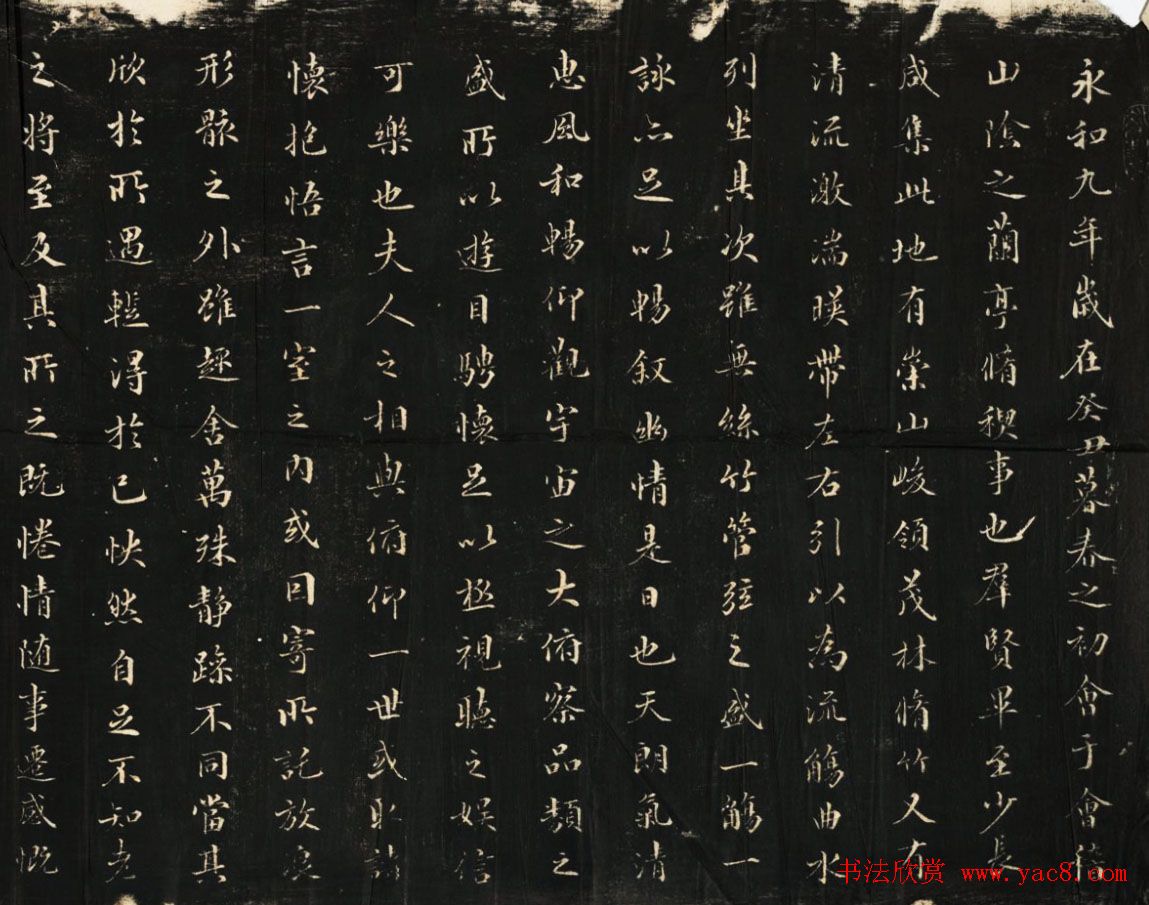 永和九年歲在癸丑暮春之初會于會稽
山陰之蘭亭脩稧事也羣賢畢至少長
咸集此地有崇山峻領茂林脩竹又有
清流激湍暎帶左右引以為流觴曲水
列坐其次雖無絲竹管弦之盛一觴一
詠亦足以暢叙幽情是日也天朗氣清
惠風和暢仰觀宇宙之大俯察品類之
盛所以遊目騁懷足以極視聽之娛信
可樂也夫人之相與俯仰一世或取諸
懷抱悟言一室之內或因寄所託放浪
形骸之外雖趣舍萬殊靜躁不同當其
欣於所遇蹔得於己怏然自足不知老
之將至及其所之既惓情随事遷感慨
书法欣赏 www.yac8.com